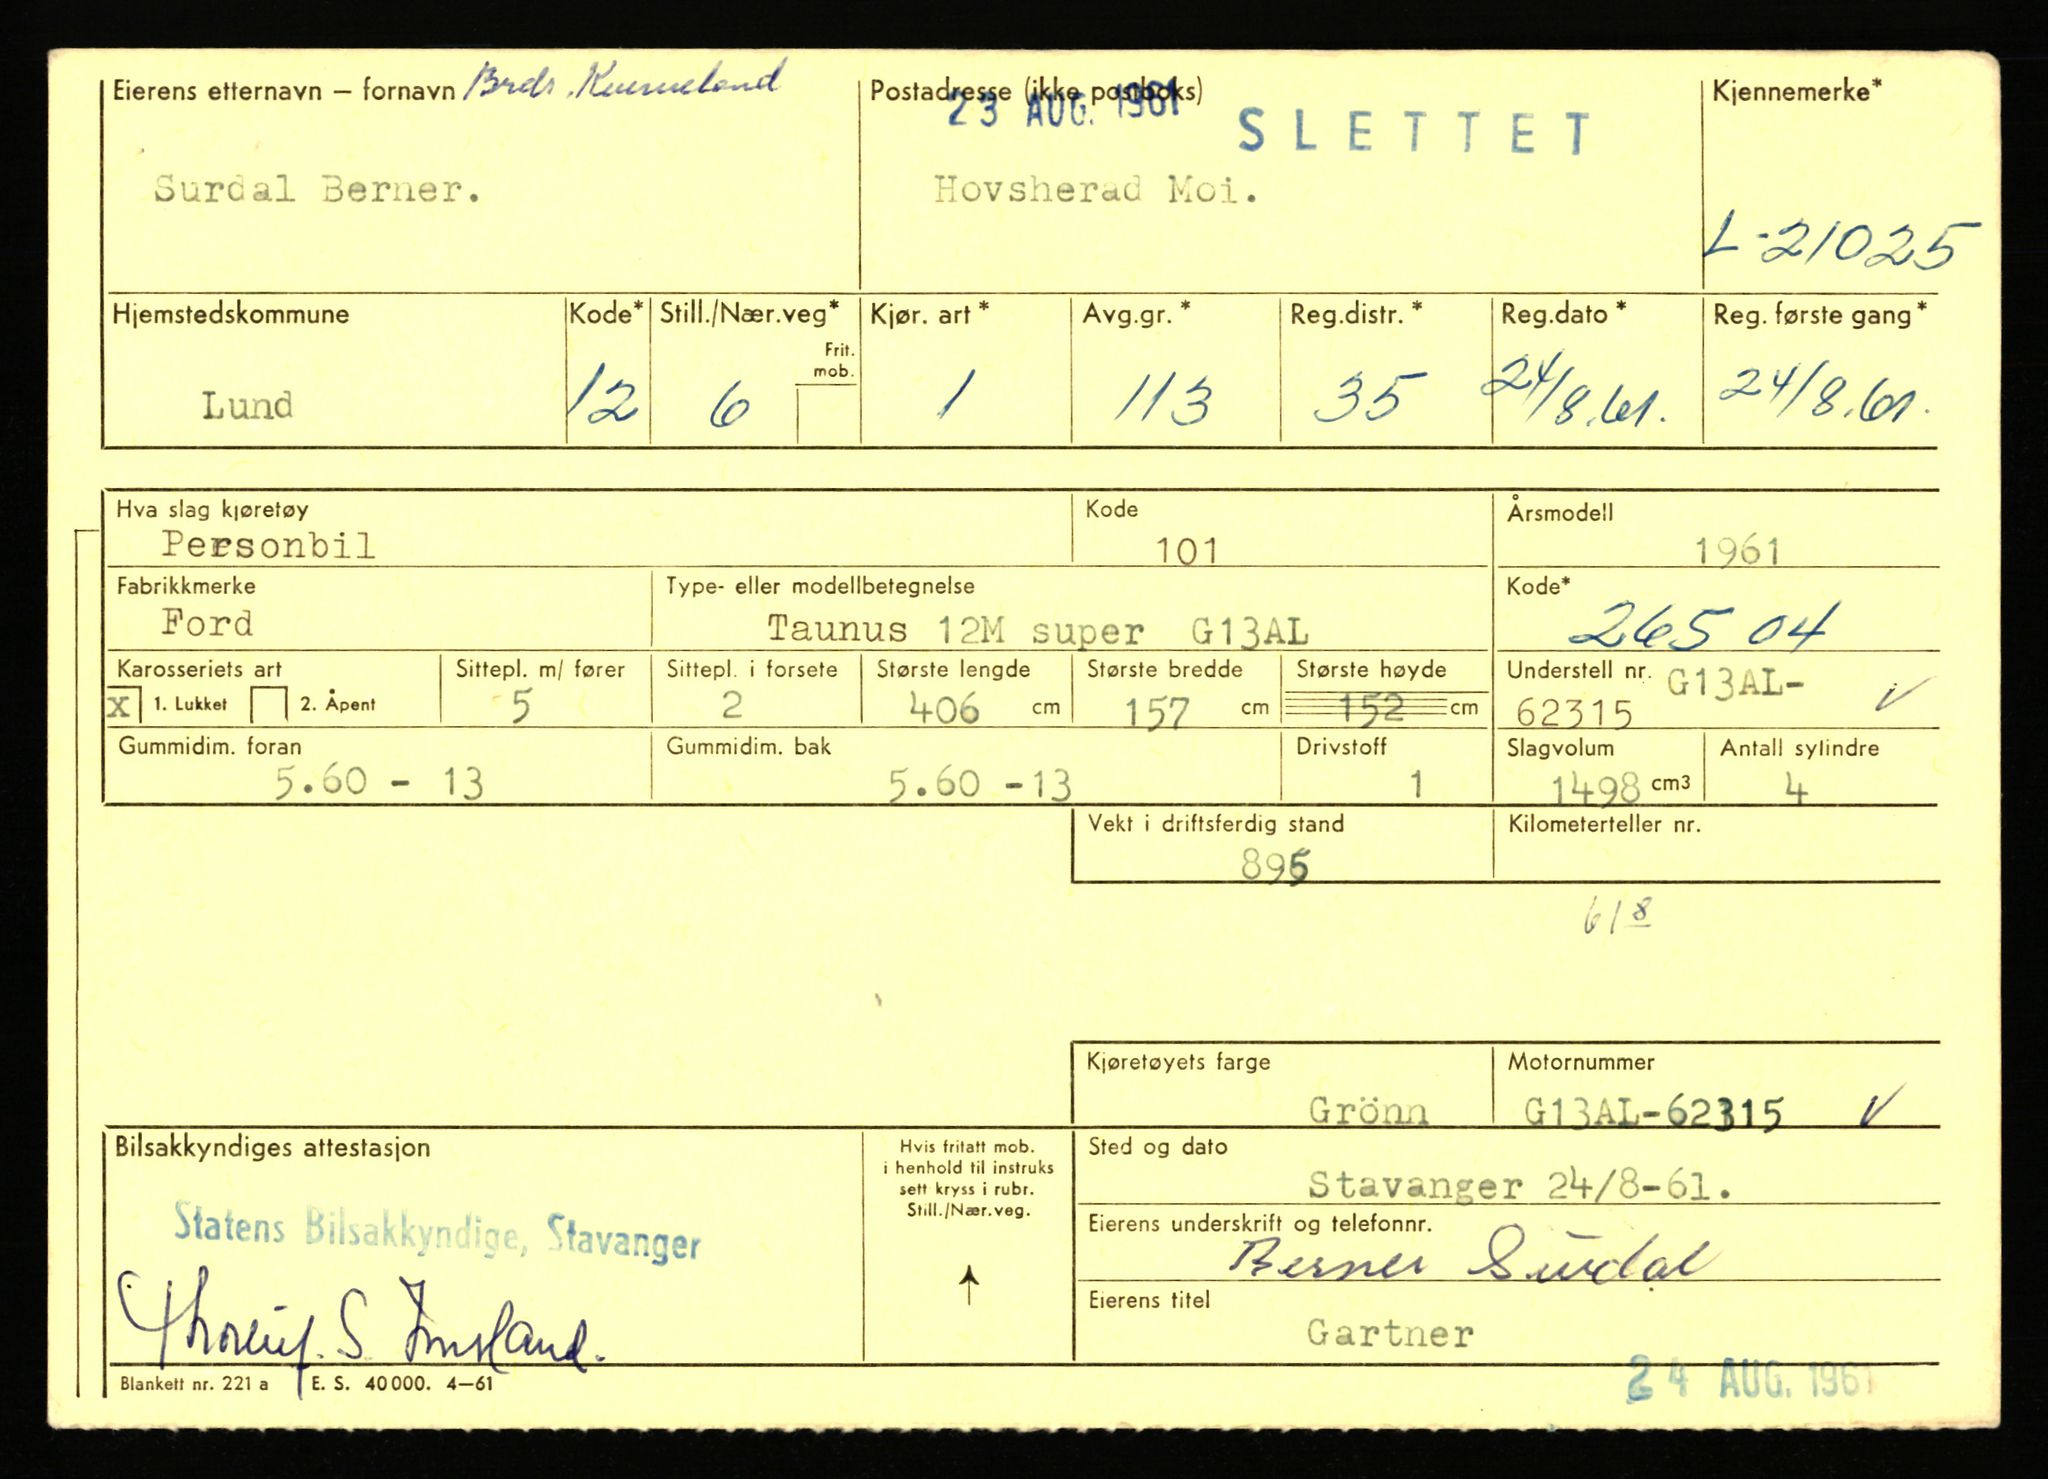 Eierens etternavn – fornavn Brdr. Kverneland
Postadresse (ikke postboks)
Kjennemerke*
23 AUG. 1961
SLETTET
Surdal Berner.
Hovsherad Moi.
L-21025
Hjemstedskommune
Kode*
Still./Nær.veg*
Kjør. art*
Avg.gr.*
Reg.distr.*
Reg.dato*
Reg. første gang*
Frit.
mob.
Lund
12
6
1
113
35
24/8.61.
24/8.61.
Hva slag kjøretøy
Kode
Årsmodell
Personbil
101
1961
Fabrikkmerke
Type- eller modellbetegnelse
Kode*
Ford
Taunus 12M super G13AL
265 04
Karosseriets art
Sittepl. m/ fører
Sittepl. i forsete
Største lengde
Største bredde
Største høyde
Understell nr. G13AL-
X 1. Lukket 2. Åpent
5
2
406 cm
157 cm
152 cm
62315
Gummidim. foran
Gummidim. bak
Drivstoff
Slagvolum
Antall sylindre
5.60 - 13
5.60 -13
1
1498 cm3
4
Vekt i driftsferdig stand
Kilometerteller nr.
895
61 8
Kjøretøyets farge
Motornummer
Grönn
G13AL-62315
Bilsakkyndiges attestasjon
Hvis fritatt mob.
i henhold til instruks
sett kryss i rubr.
Still./Nær.veg.
Sted og dato
Stavanger 24/8-61.
Statens Bilsakkyndige, Stavanger
Eierens underskrift og telefonnr.
Berner Surdal
Eierens titel
Gartner
Blankett nr. 221 a E. S. 40 000. 4–61
24 AUG. 1961